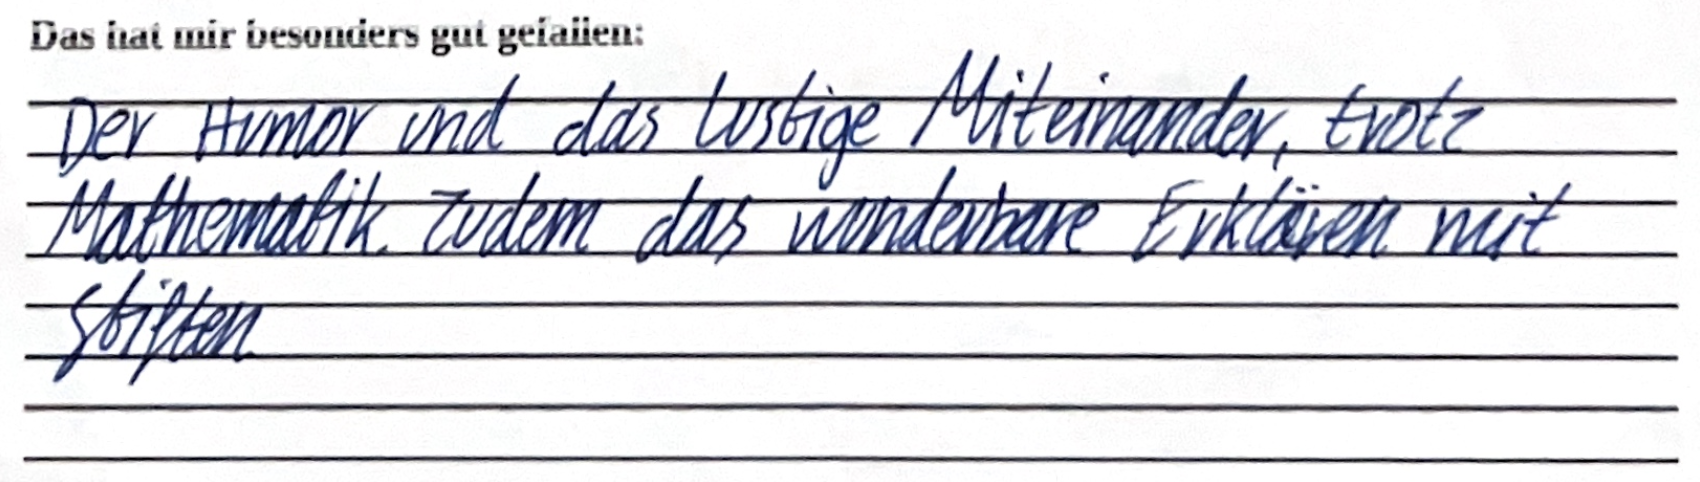 Das hat mir besonders gut gefallen:
Der Humor und das lustige Miteinander, trotz
Mathematik. Zudem das wunderbare Erklären mit
Stiften.